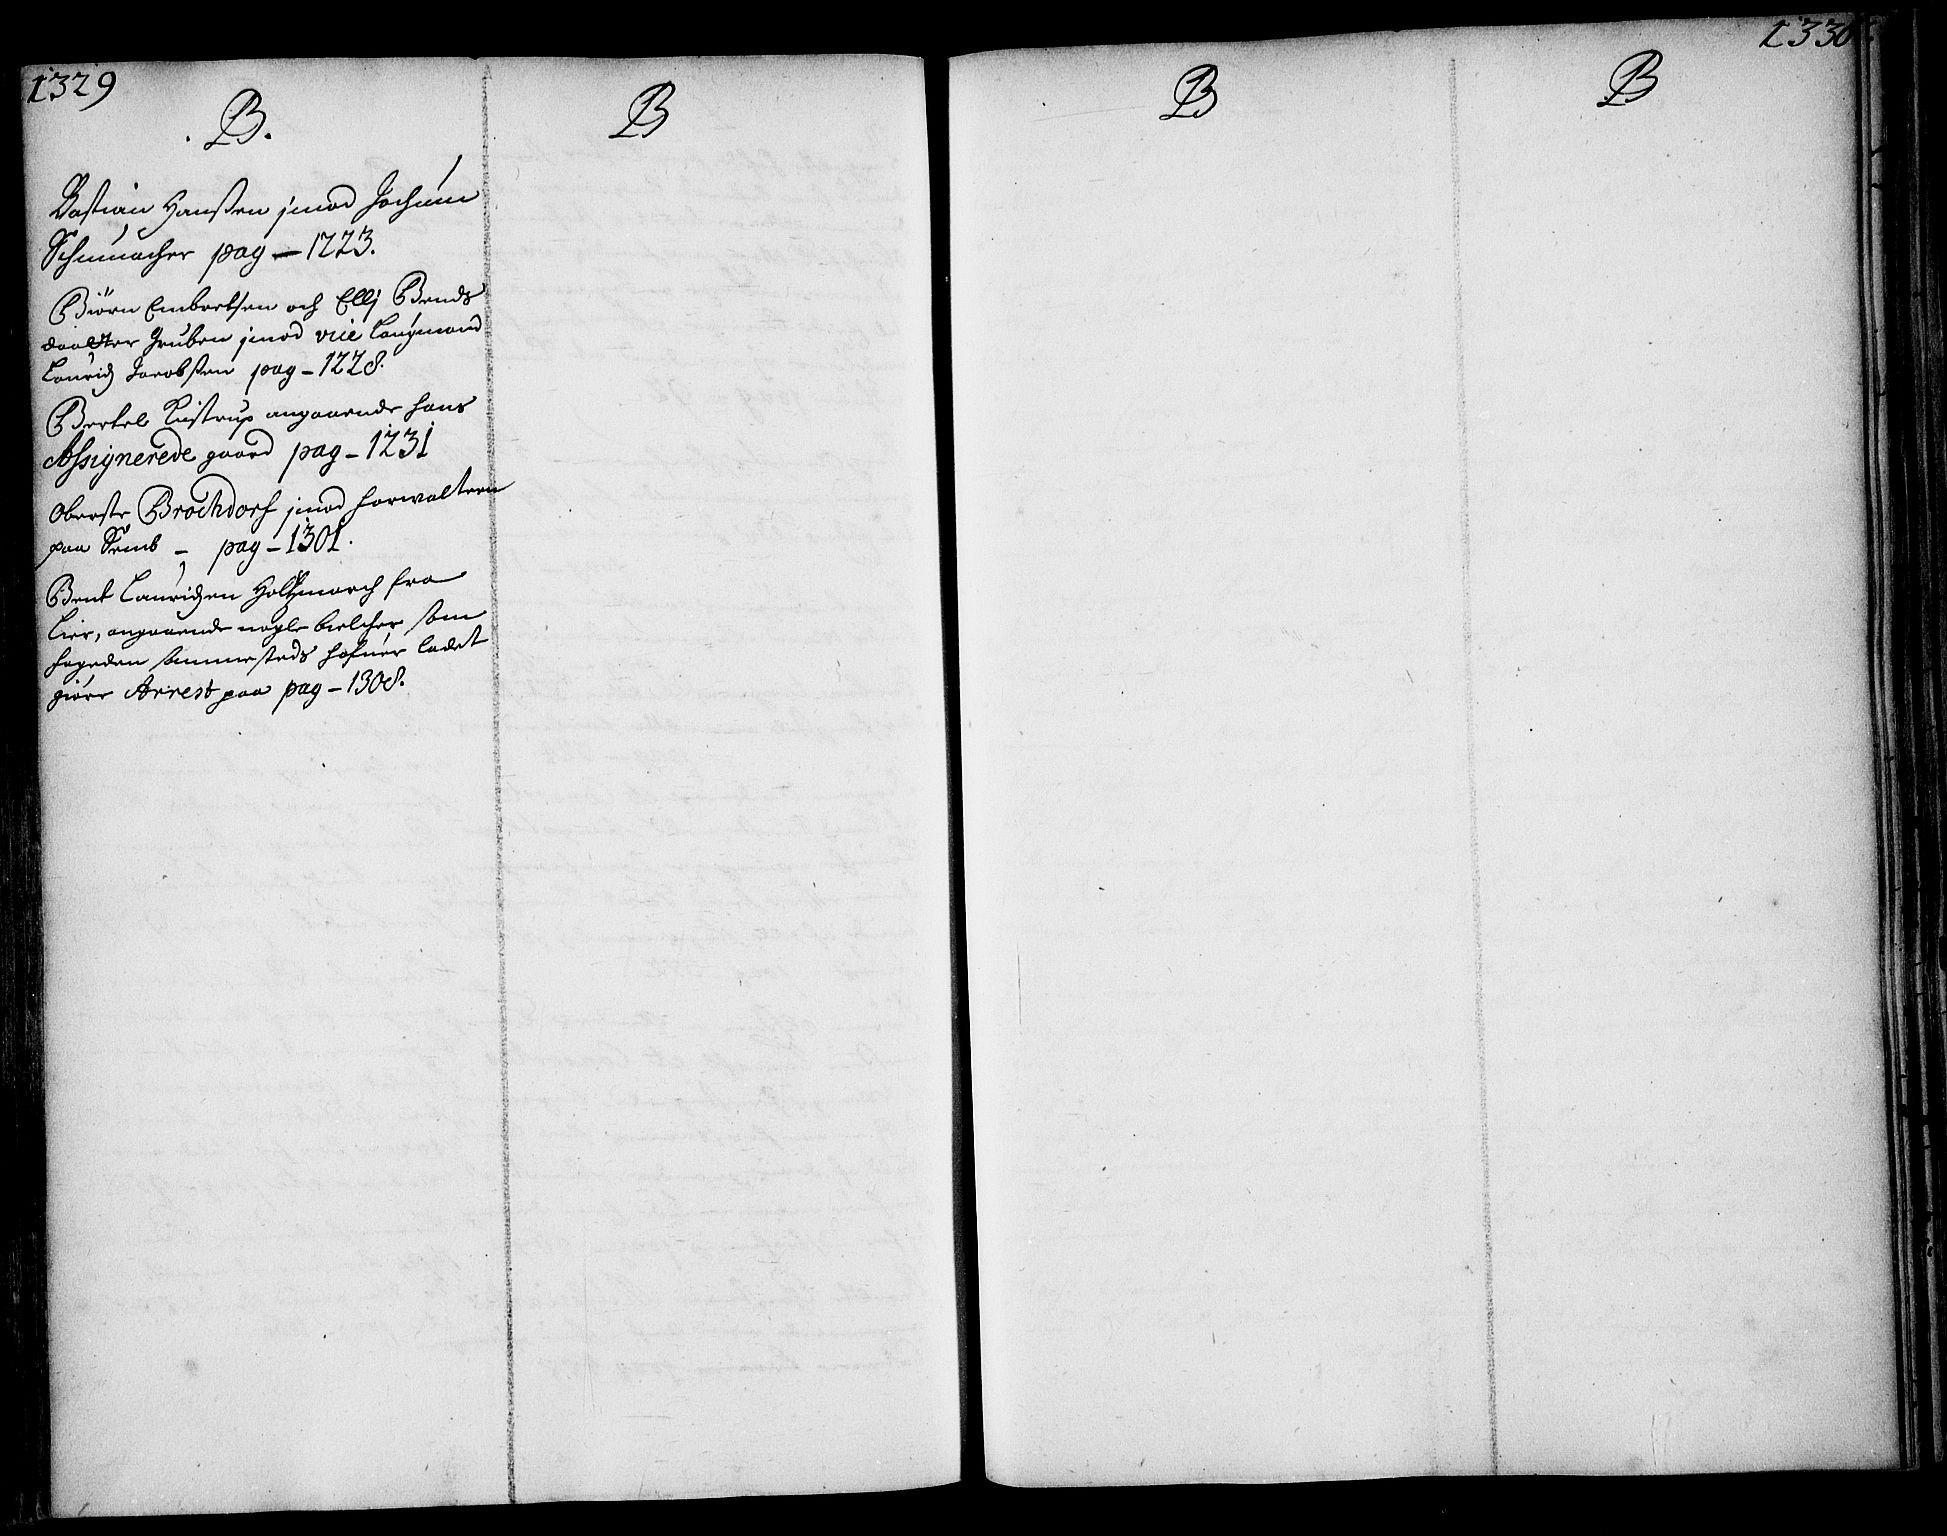 1329
B.
Bastian Hanssen jmod Jochum
Schumacher pag - 1223.
Biörn Embretsen och Ellj Bends
daatter Gruben jmod vice Laugmand
Lauridz Jacobssen pag - 1228.
Bertel Listrup angaaende hans
Assignerede gaard pag - 1231
Oberste Brochdorf jmod forwalteren
paa Semb - pag - 1301.
Bent Lauridzen Holtzmarch fra
Lier, angaaende nogle bielcher som
fogeden sammesteds hafuer ladet
giöre Arrest paa pag - 1308.
B
B
B
1330